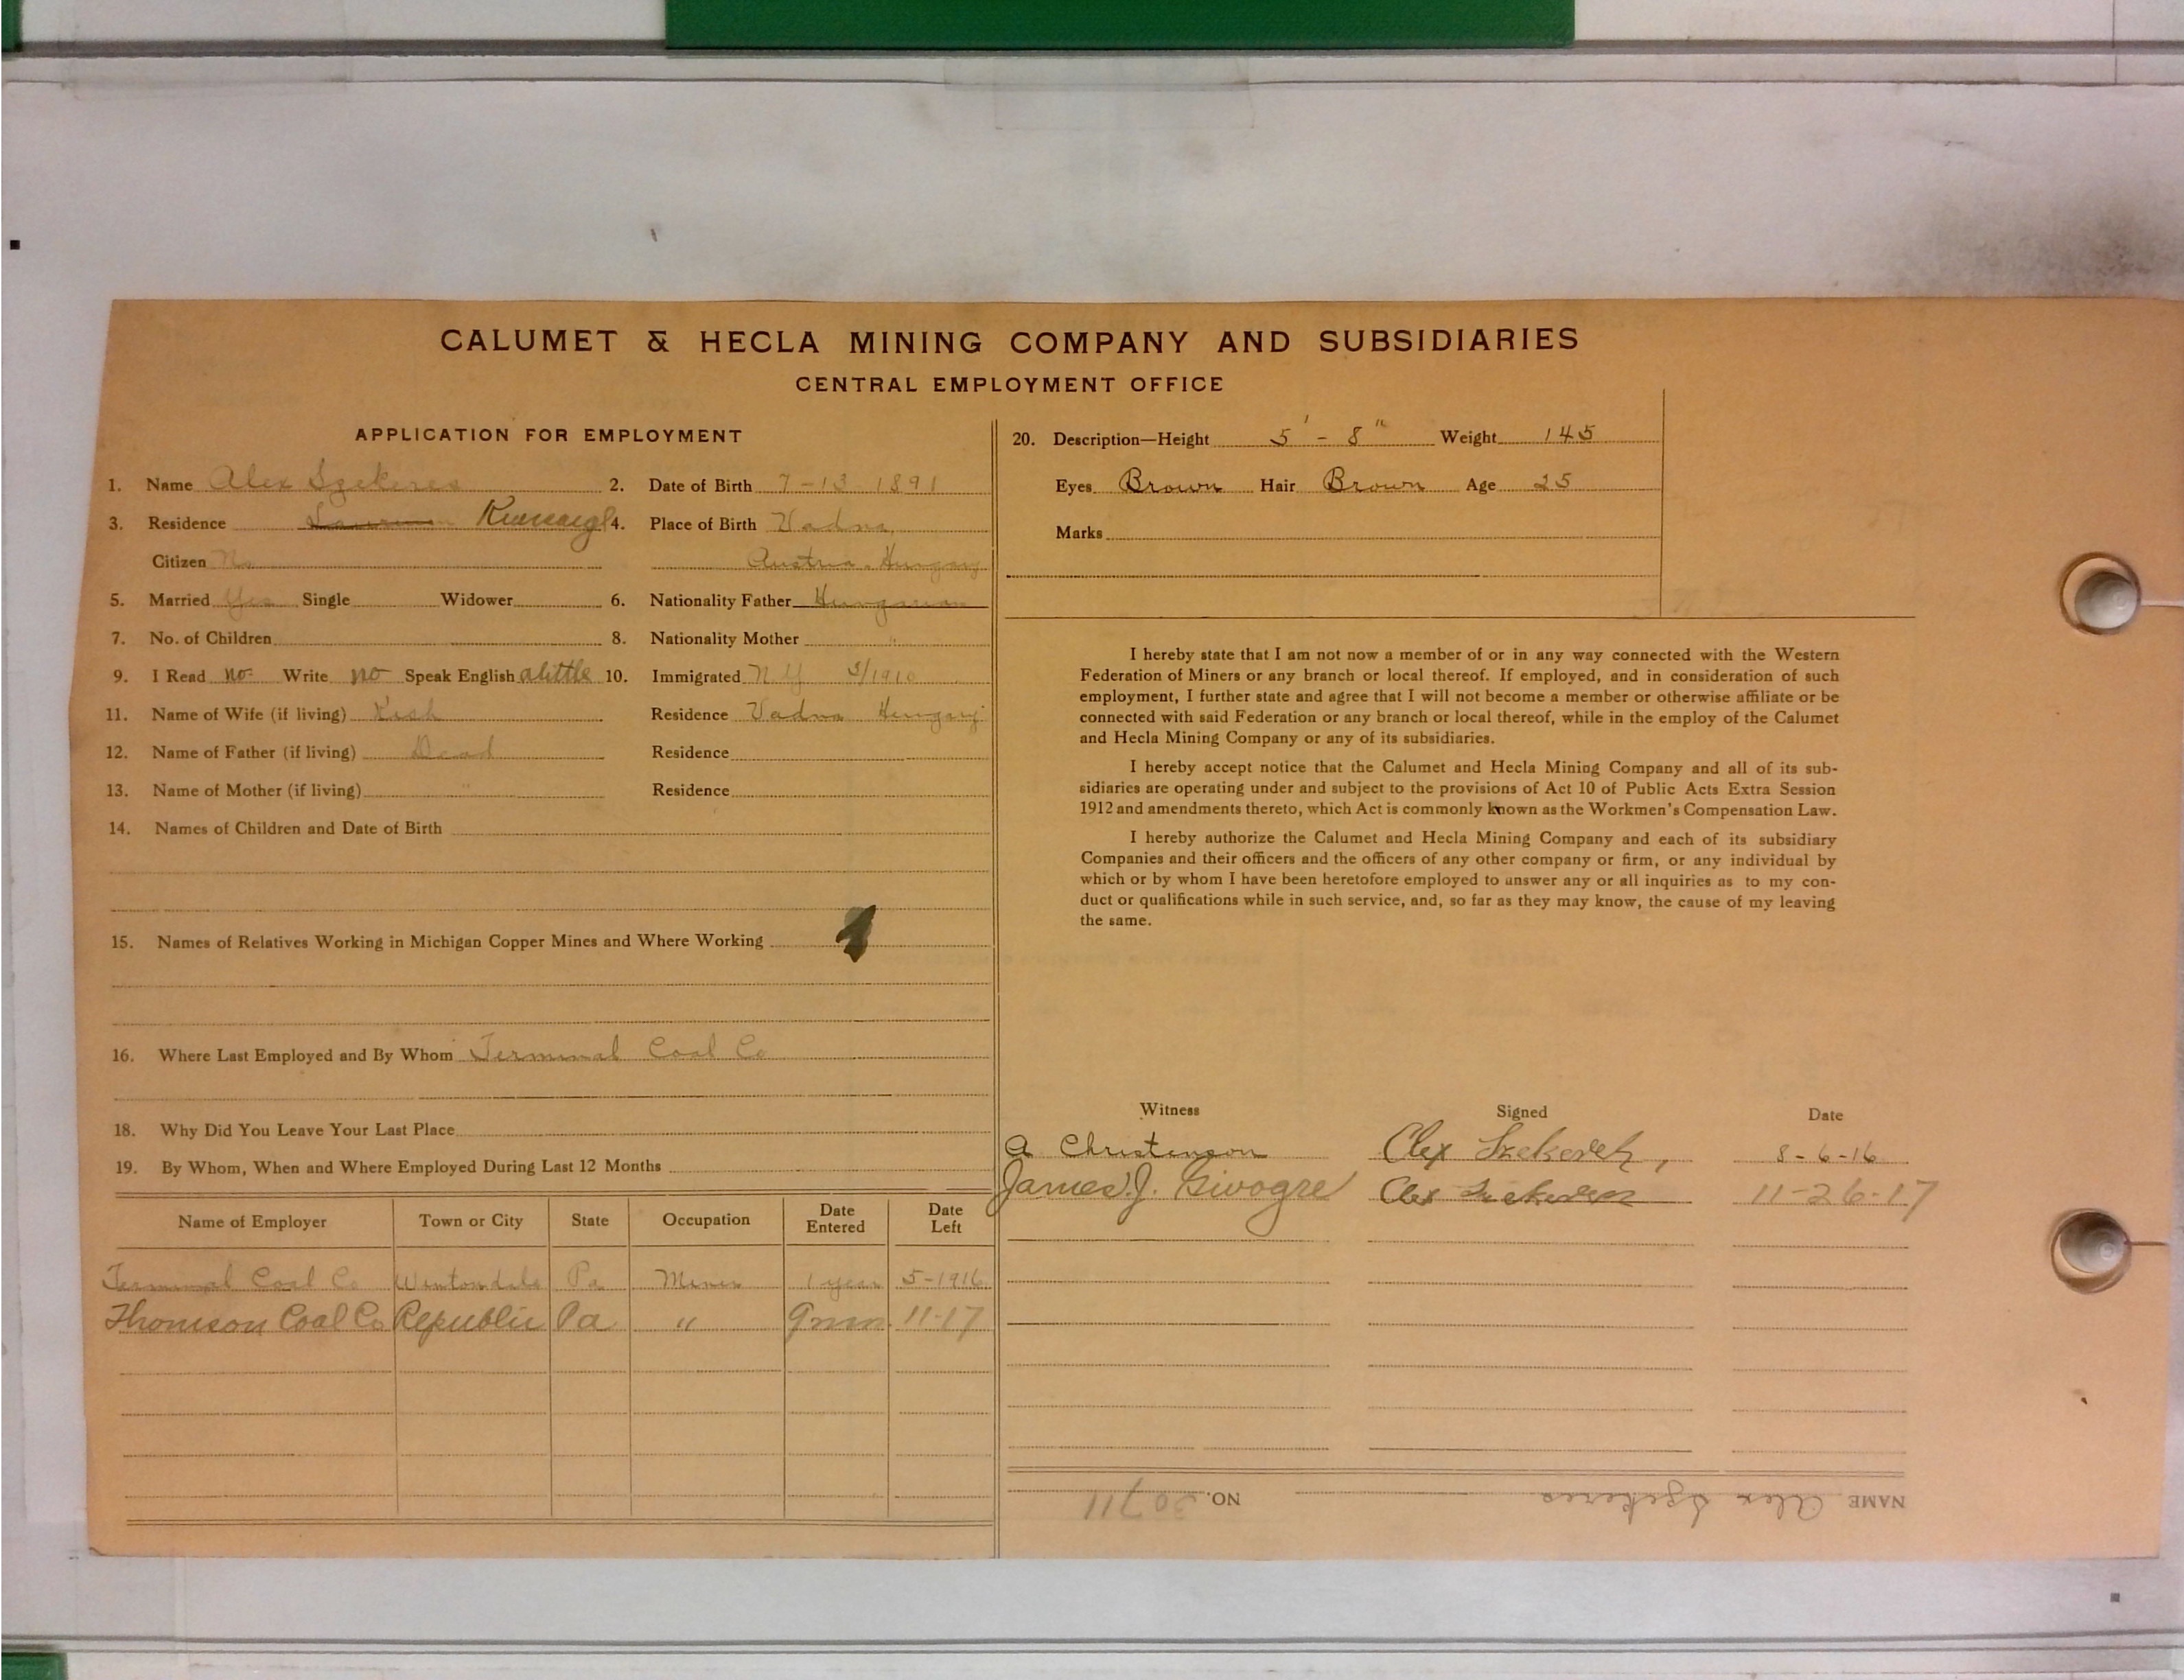 CALUMET & HECLA MINING COMPANY AND SUBSIDIARIES
CENTRAL EMPLOYMENT OFFICE
APPLICATION FOR EMPLOYMENT
1. Name Alex Szekeres 2. Date of Birth 7-13 1891
3. Residence 4. Place of Birth Vadna,
Citizen No Austria-Hungary
5. Married Yes Single Widower 6. Nationality Father Hungarian
7. No. of Children 8. Nationality Mother "
9. I Read no Write no Speak English alittle 10. Immigrated N.Y 3/1910
11. Name of Wife (if living) Kish Residence Vadna Hungary
12. Name of Father (if living) Dead Residence
13. Name of Mother (if living) " Residence
14. Names of Children and Date of Birth
15. Names of Relatives Working in Michigan Copper Mines and Where Working
16. Where Last Employed and By Whom Terminal Coal Co
18. Why Did You Leave Your Last Place
19. By Whom, When and Where Employed During Last 12 Months
Name of Employer Town or City State Occupation Date Entered Date Left
Terminal Coal Co Wintondale Pa Miner 1 year 5-1916
Thomson Coal Co Republic Pa " 9 mon. 11-17
20. Description—Height 5'-8" Weight 145
Eyes Brown Hair Brown Age 25
Marks
I hereby state that I am not now a member of or in any way connected with the Western
Federation of Miners or any branch or local thereof. If employed, and in consideration of such
employment, I further state and agree that I will not become a member or otherwise affiliate or be
connected with said Federation or any branch or local thereof, while in the employ of the Calumet
and Hecla Mining Company or any of its subsidiaries.
I hereby accept notice that the Calumet and Hecla Mining Company and all of its sub-
sidiaries are operating under and subject to the provisions of Act 10 of Public Acts Extra Session
1912 and amendments thereto, which Act is commonly known as the Workmen's Compensation Law.
I hereby authorize the Calumet and Hecla Mining Company and each of its subsidiary
Companies and their officers and the officers of any other company or firm, or any individual by
which or by whom I have been heretofore employed to answer any or all inquiries as to my con-
duct or qualifications while in such service, and, so far as they may know, the cause of my leaving
the same.
Witness Signed Date
A Christenson Alex 8-6-16
James J. Alex 11-26-17
NAME Alex Szekeres NO. 30711